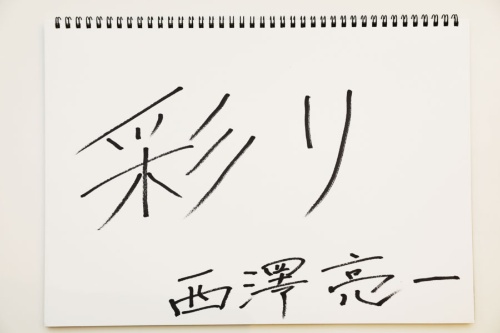 彩り
西澤亮一